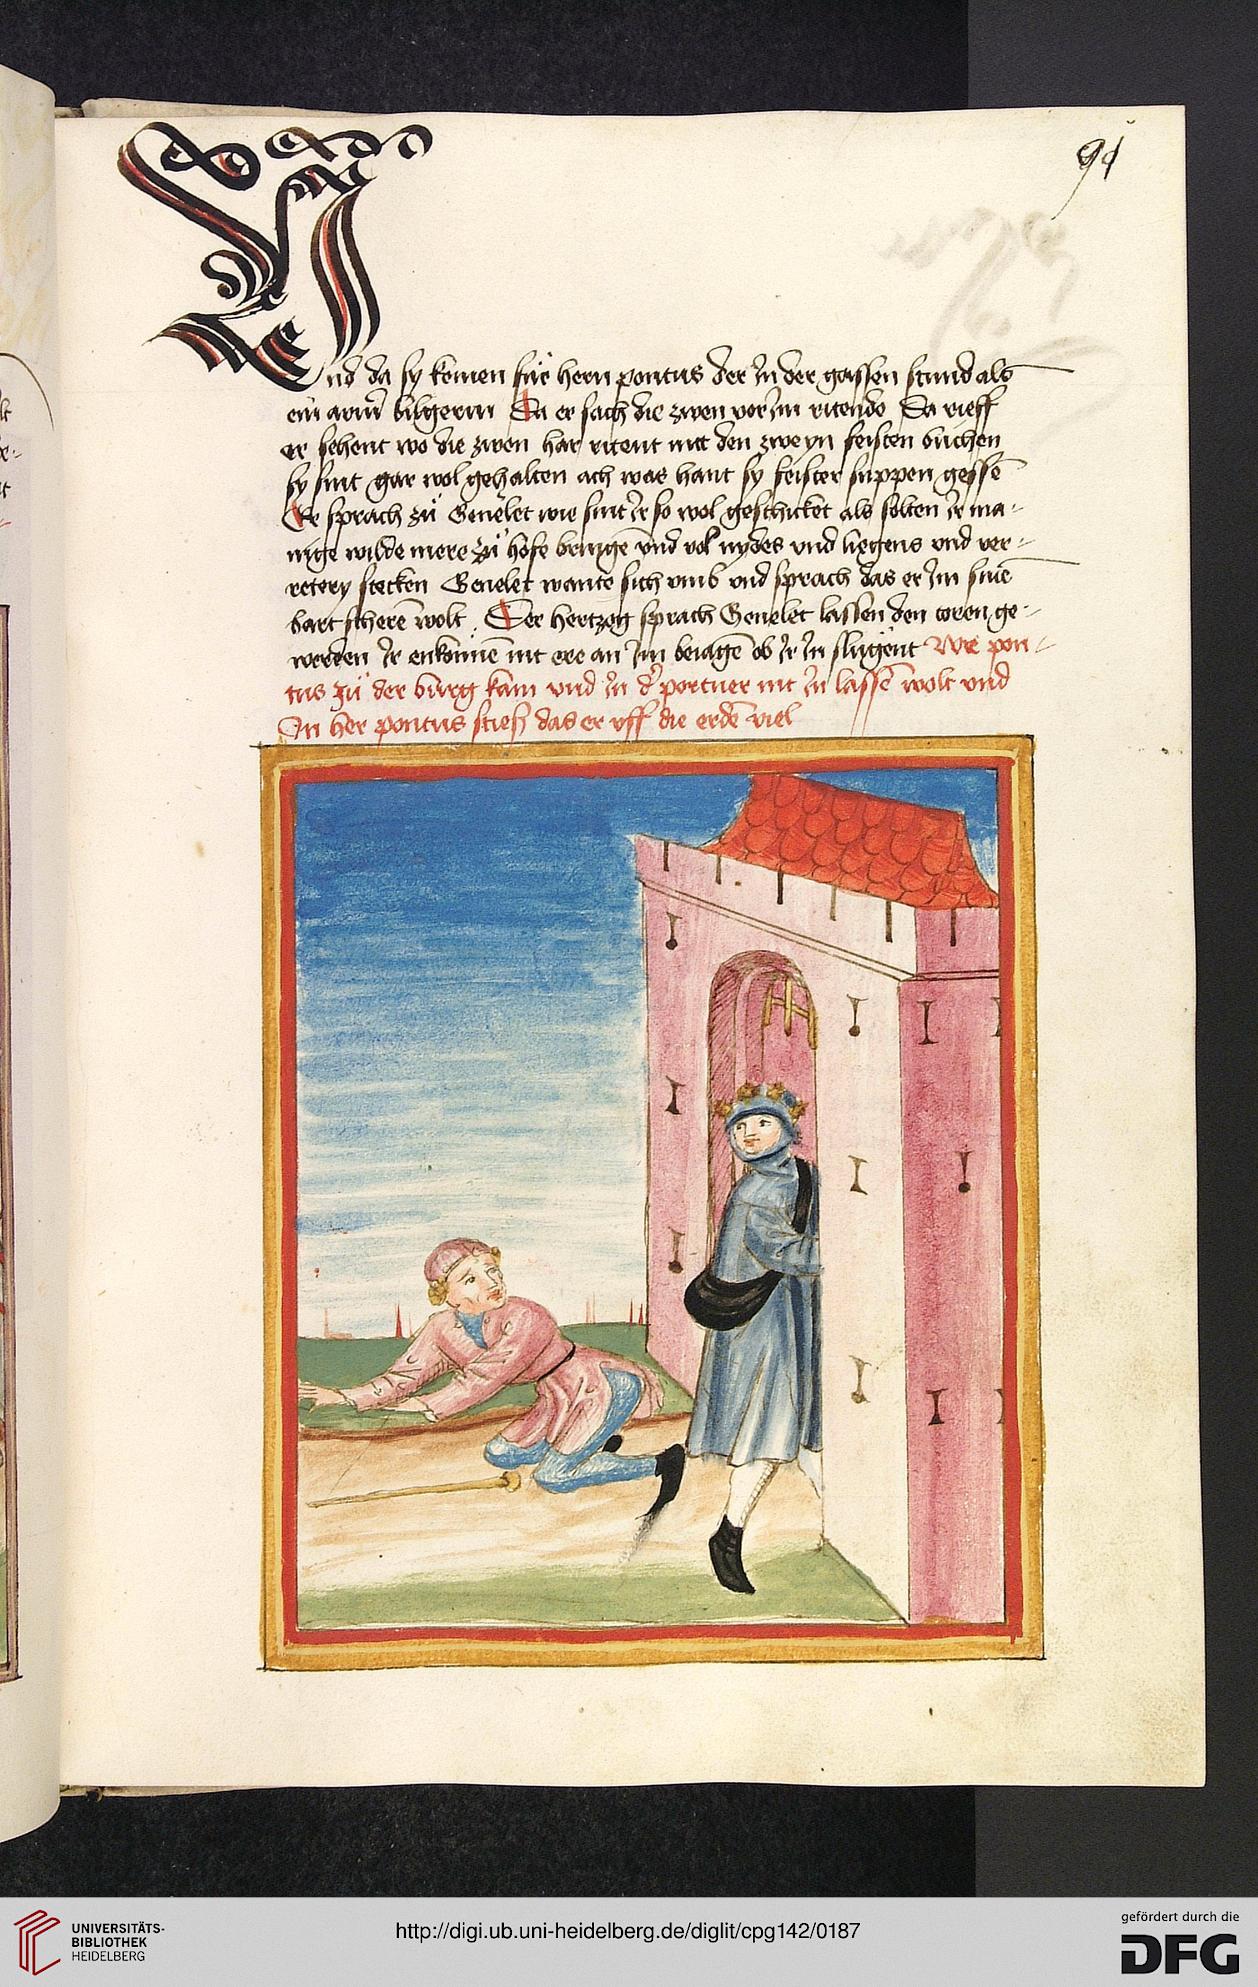 91
Vnd da sy komen für hern pontus der Jn der gassen stund als
ein arm̄ bilgerin Da er sach die zwen vor Jm ritende Da rieff
er sehent wo die zwen har ritent mit den zweyn feisten buchen
sy sint gar wol gehalten ach was hant sy feister suppen gessē
Er sprach zů Genelet wie sint Jr so wol geschicket als solten Jr ma-
nige wilde mere zů hofe bringē vnd vol nydes vnd liegens vnd ver-
retery stecken Genelet wante sich vmb vnd sprach das er Jm sinē
bart scherē wolt Der hertzog sprach Genelet lassen den toren ge-
werden Jr enkonnē nit ere an Jm beiagē ob Jr Jn slůgent Wie pon-
tus zů der burg kam vnd Jn d' portner nit Jn lassē wolt vnd
Jn her pontus sties das er vff die erdē viel
UNIVERSITÄTS-
BIBLIOTHEK
HEIDELBERG
http://digi.ub.uni-heidelberg.de/diglit/cpg142/0187
gefördert durch die
DFG